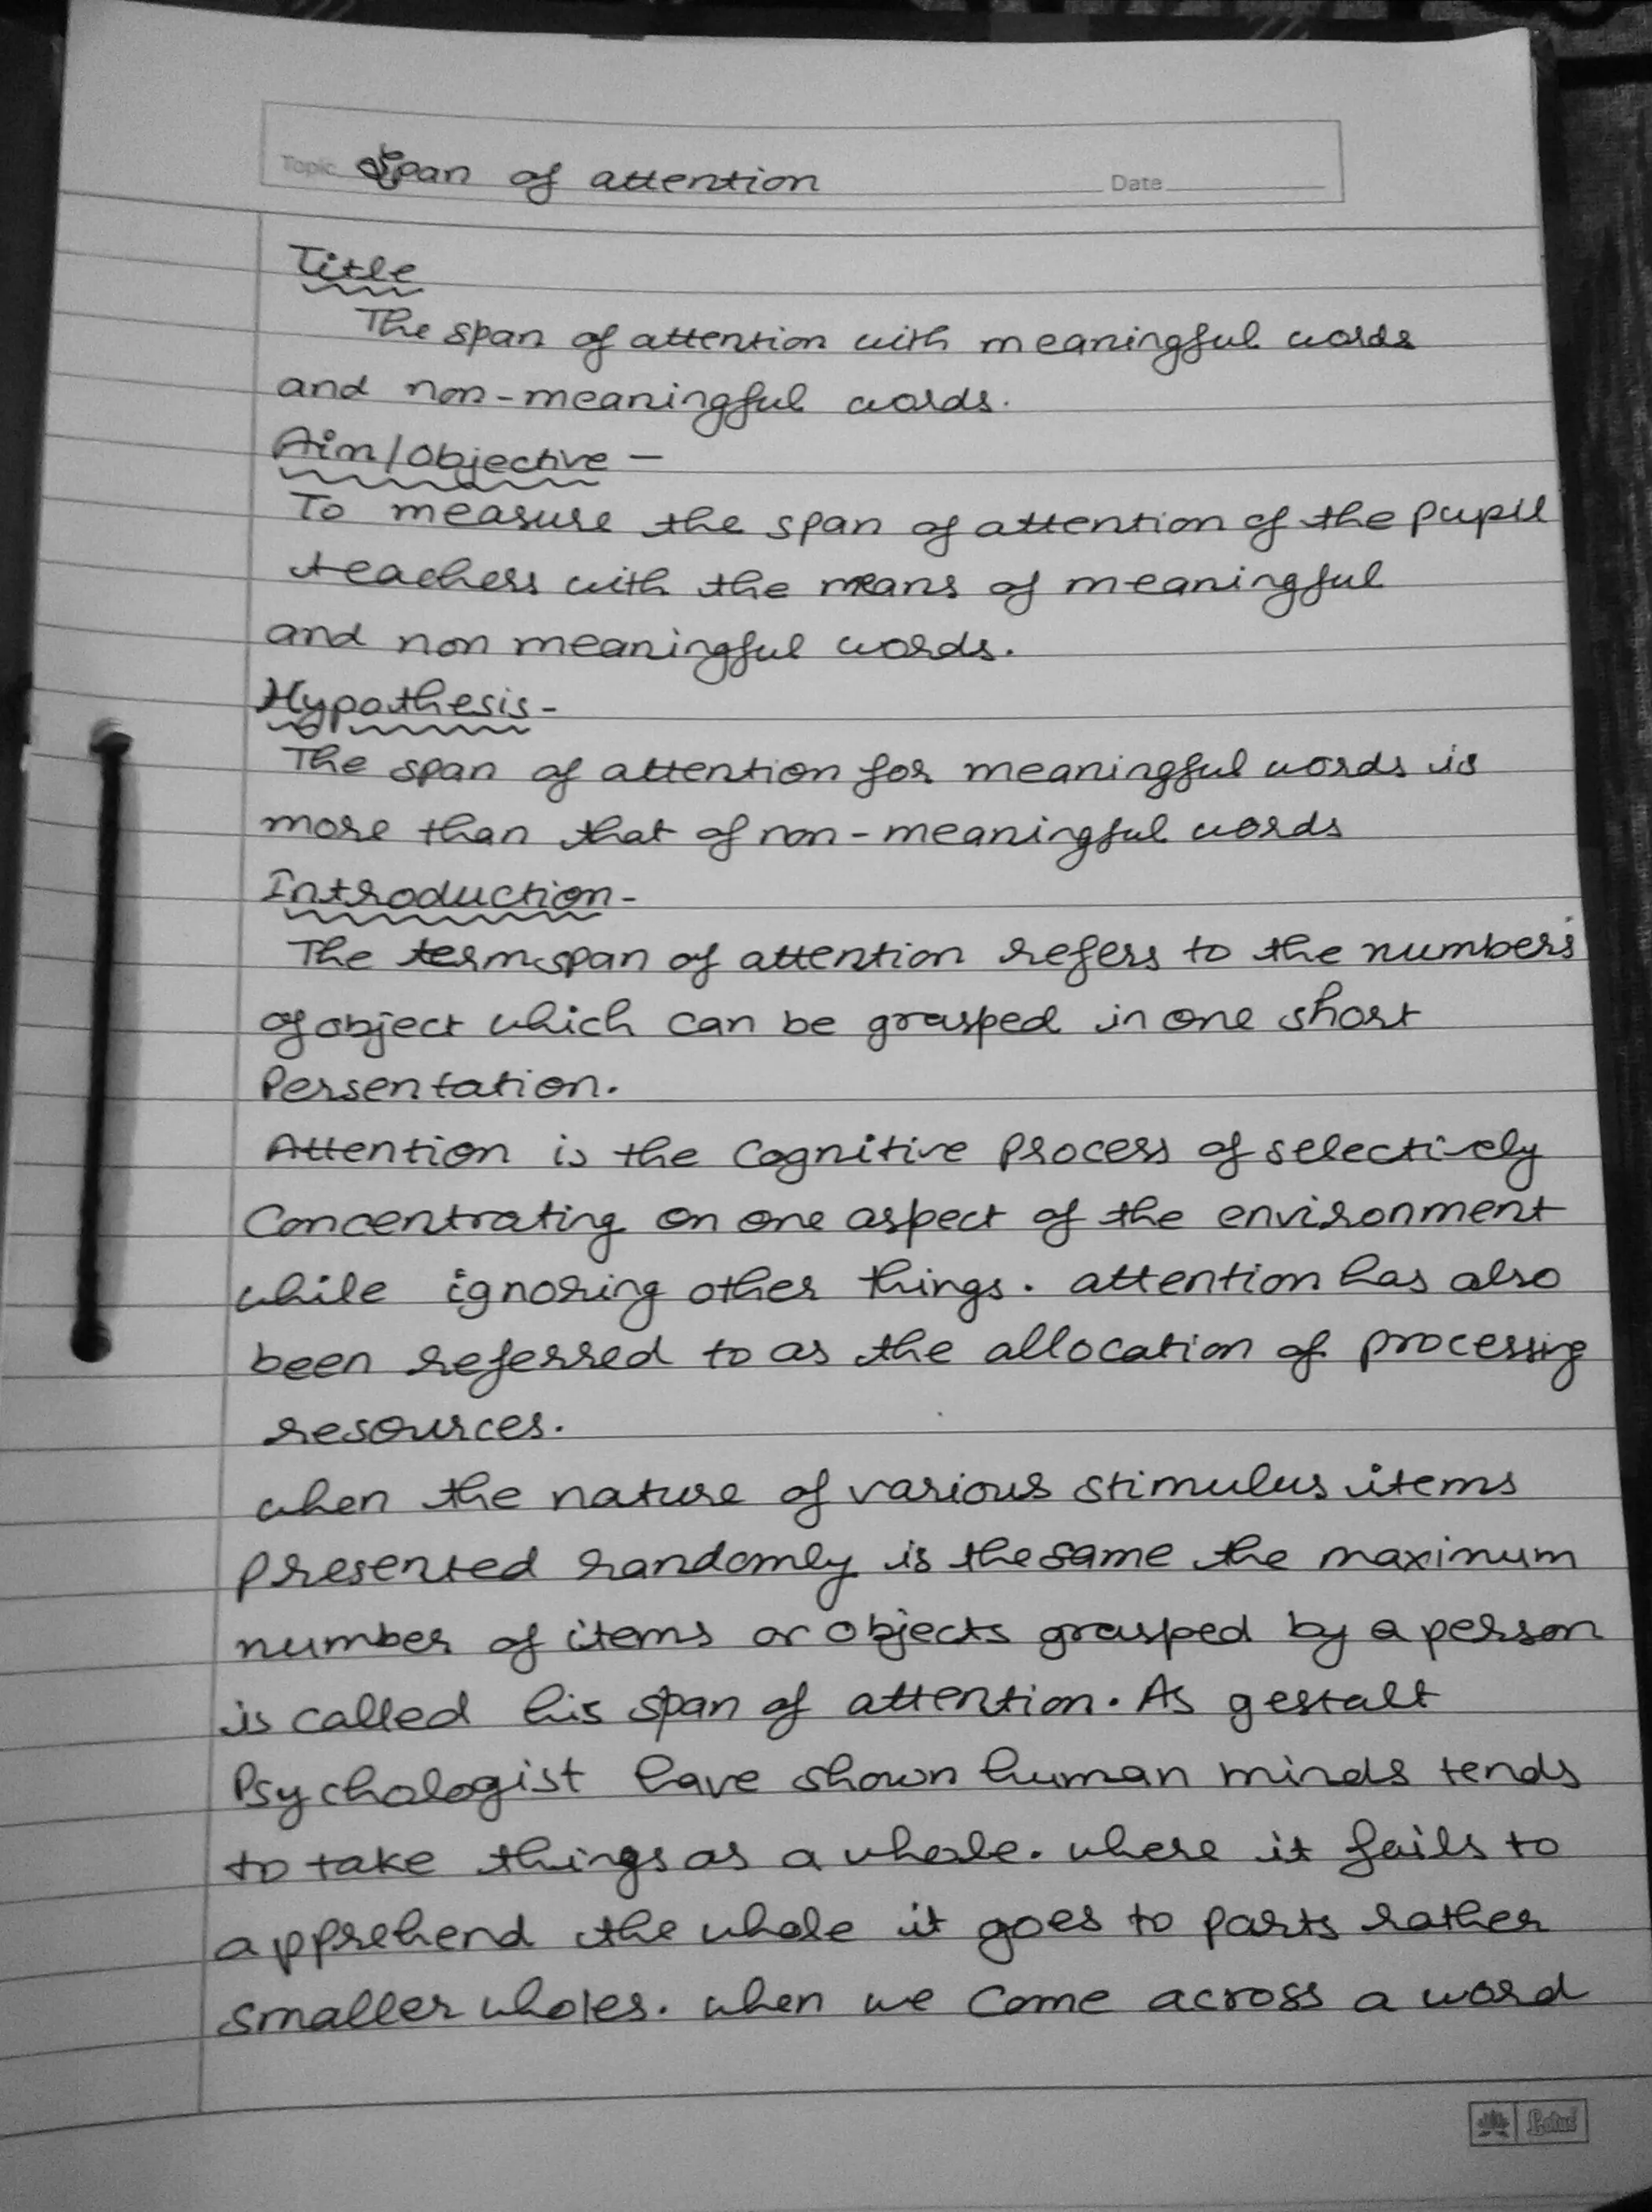 Topic Span of attention Date
Title
The span of attention with meaningful words
and non-meaningful words.
Aim/Objective -
To measure the span of attention of the pupil
teachers with the means of meaningful
and non meaningful words.
Hypothesis-
The span of attention for meaningful words is
more than that of non-meaningful words
Introduction-
The term span of attention refers to the numbers
of object which can be grasped in one short
Persentation.
Attention is the Cognitive Process of selectively
Concentrating on one aspect of the environment
while ignoring other things. attention has also
been referred to as the allocation of processing
resources.
when the nature of various stimulus items
presented randomly is the same the maximum
number of items or objects grasped by a person
is called his span of attention. As gestalt
Psychologist have shown human minds tends
to take things as a whole. where it fails to
apprehend the whole it goes to parts rather
smaller wholes. when we come across a word
Lotus